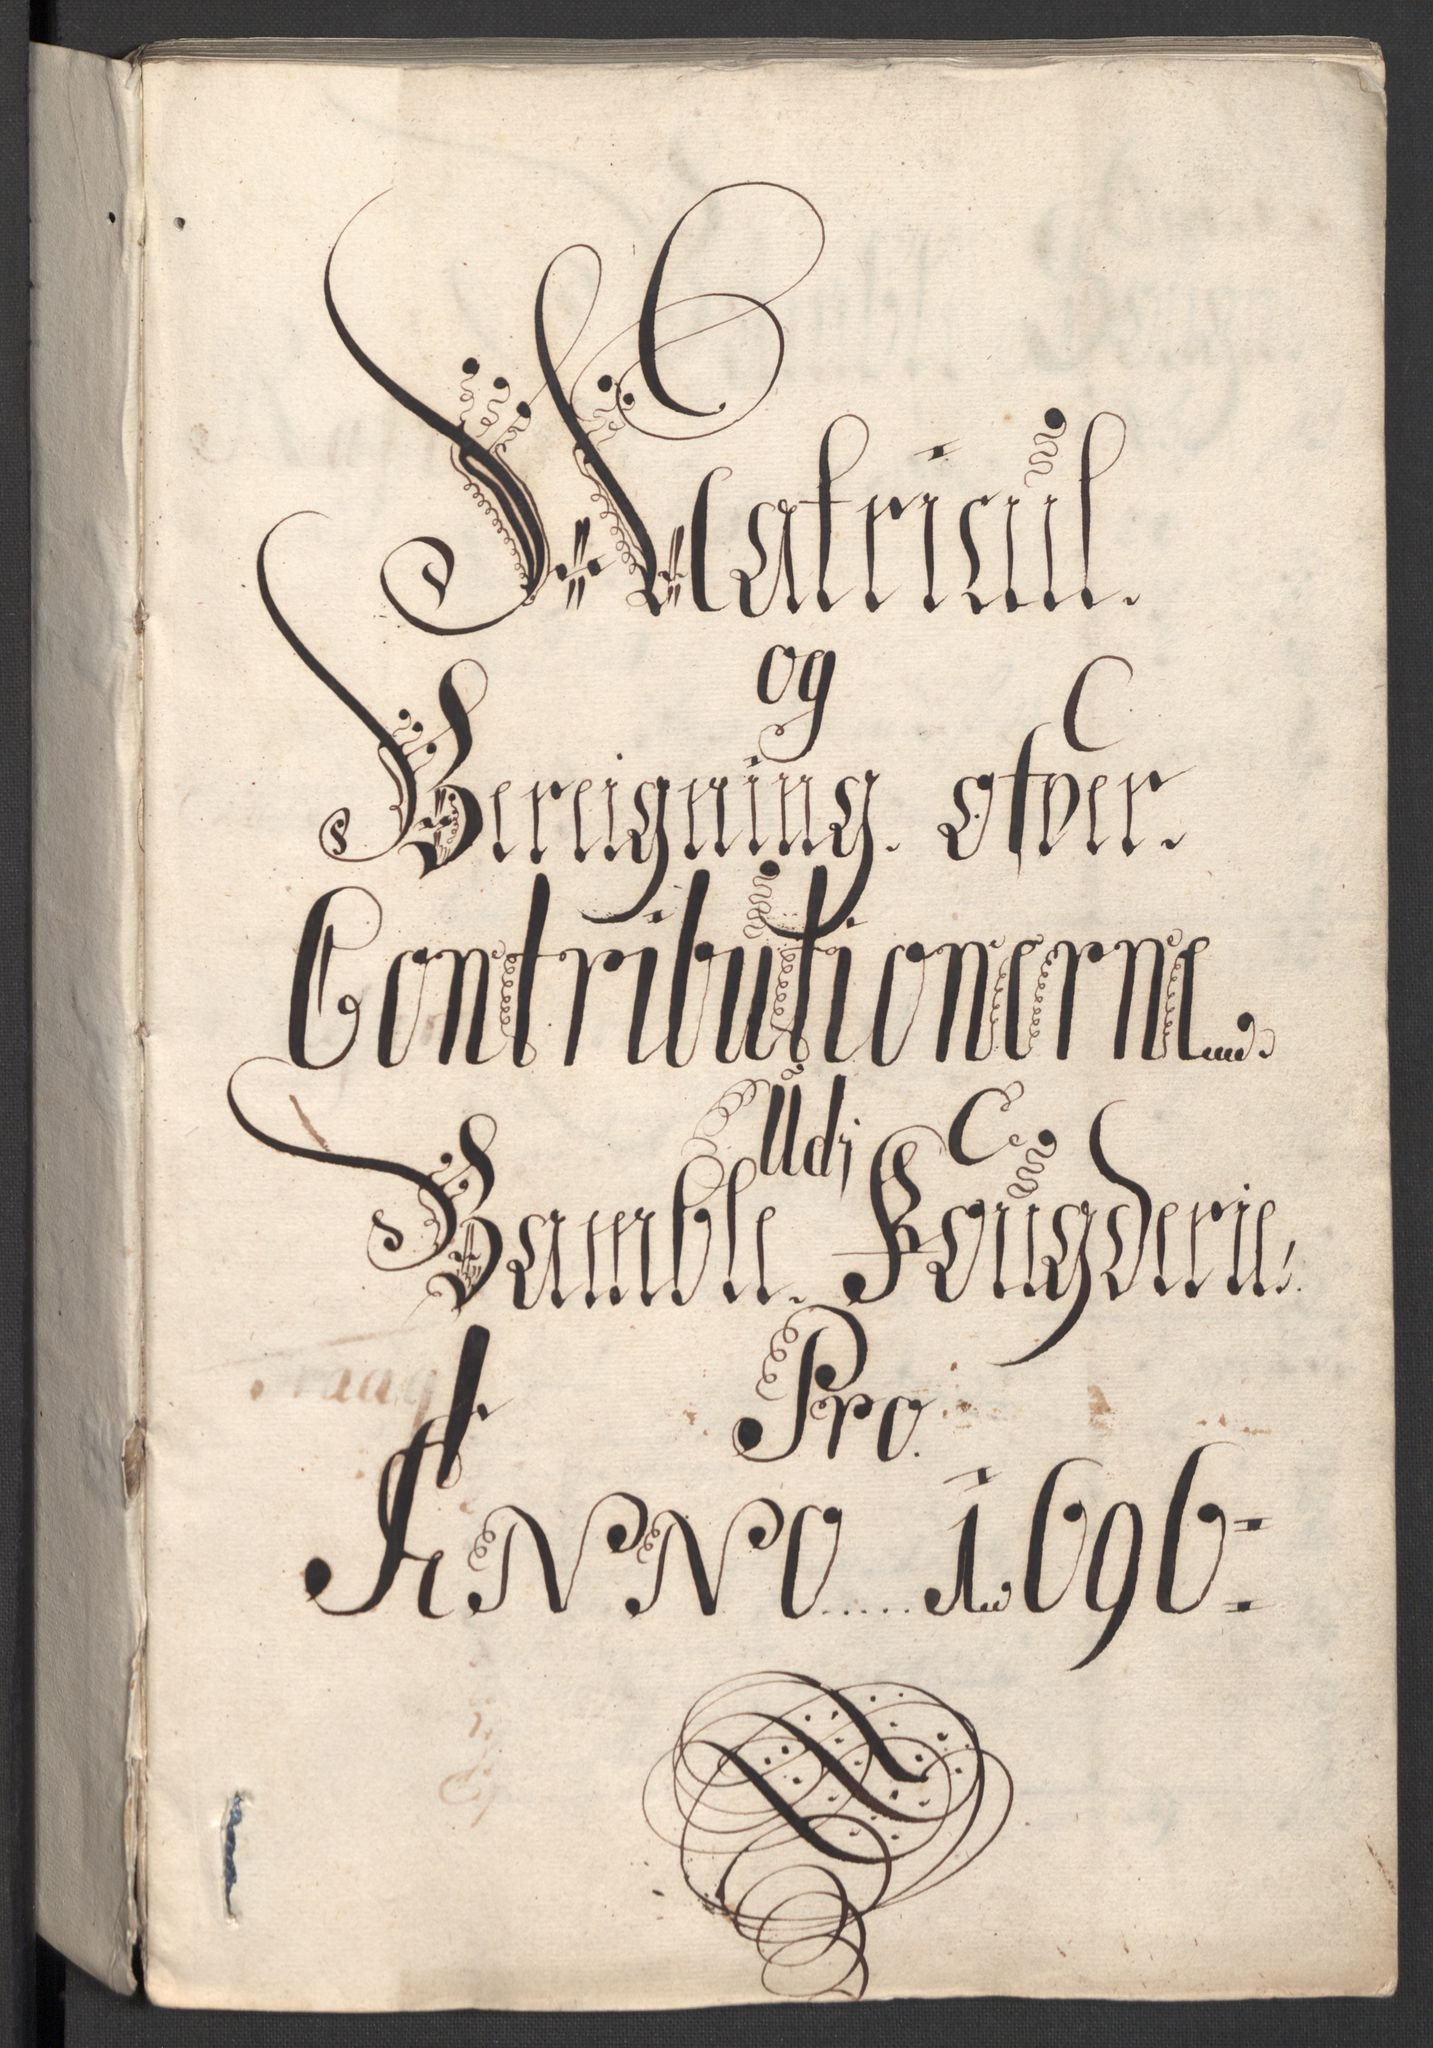 Matricul.
og
Bereigning. ofver.
Contributionerne.
Udj
Bamble. Fougderie.
Pro.
ANNO..... 1696=